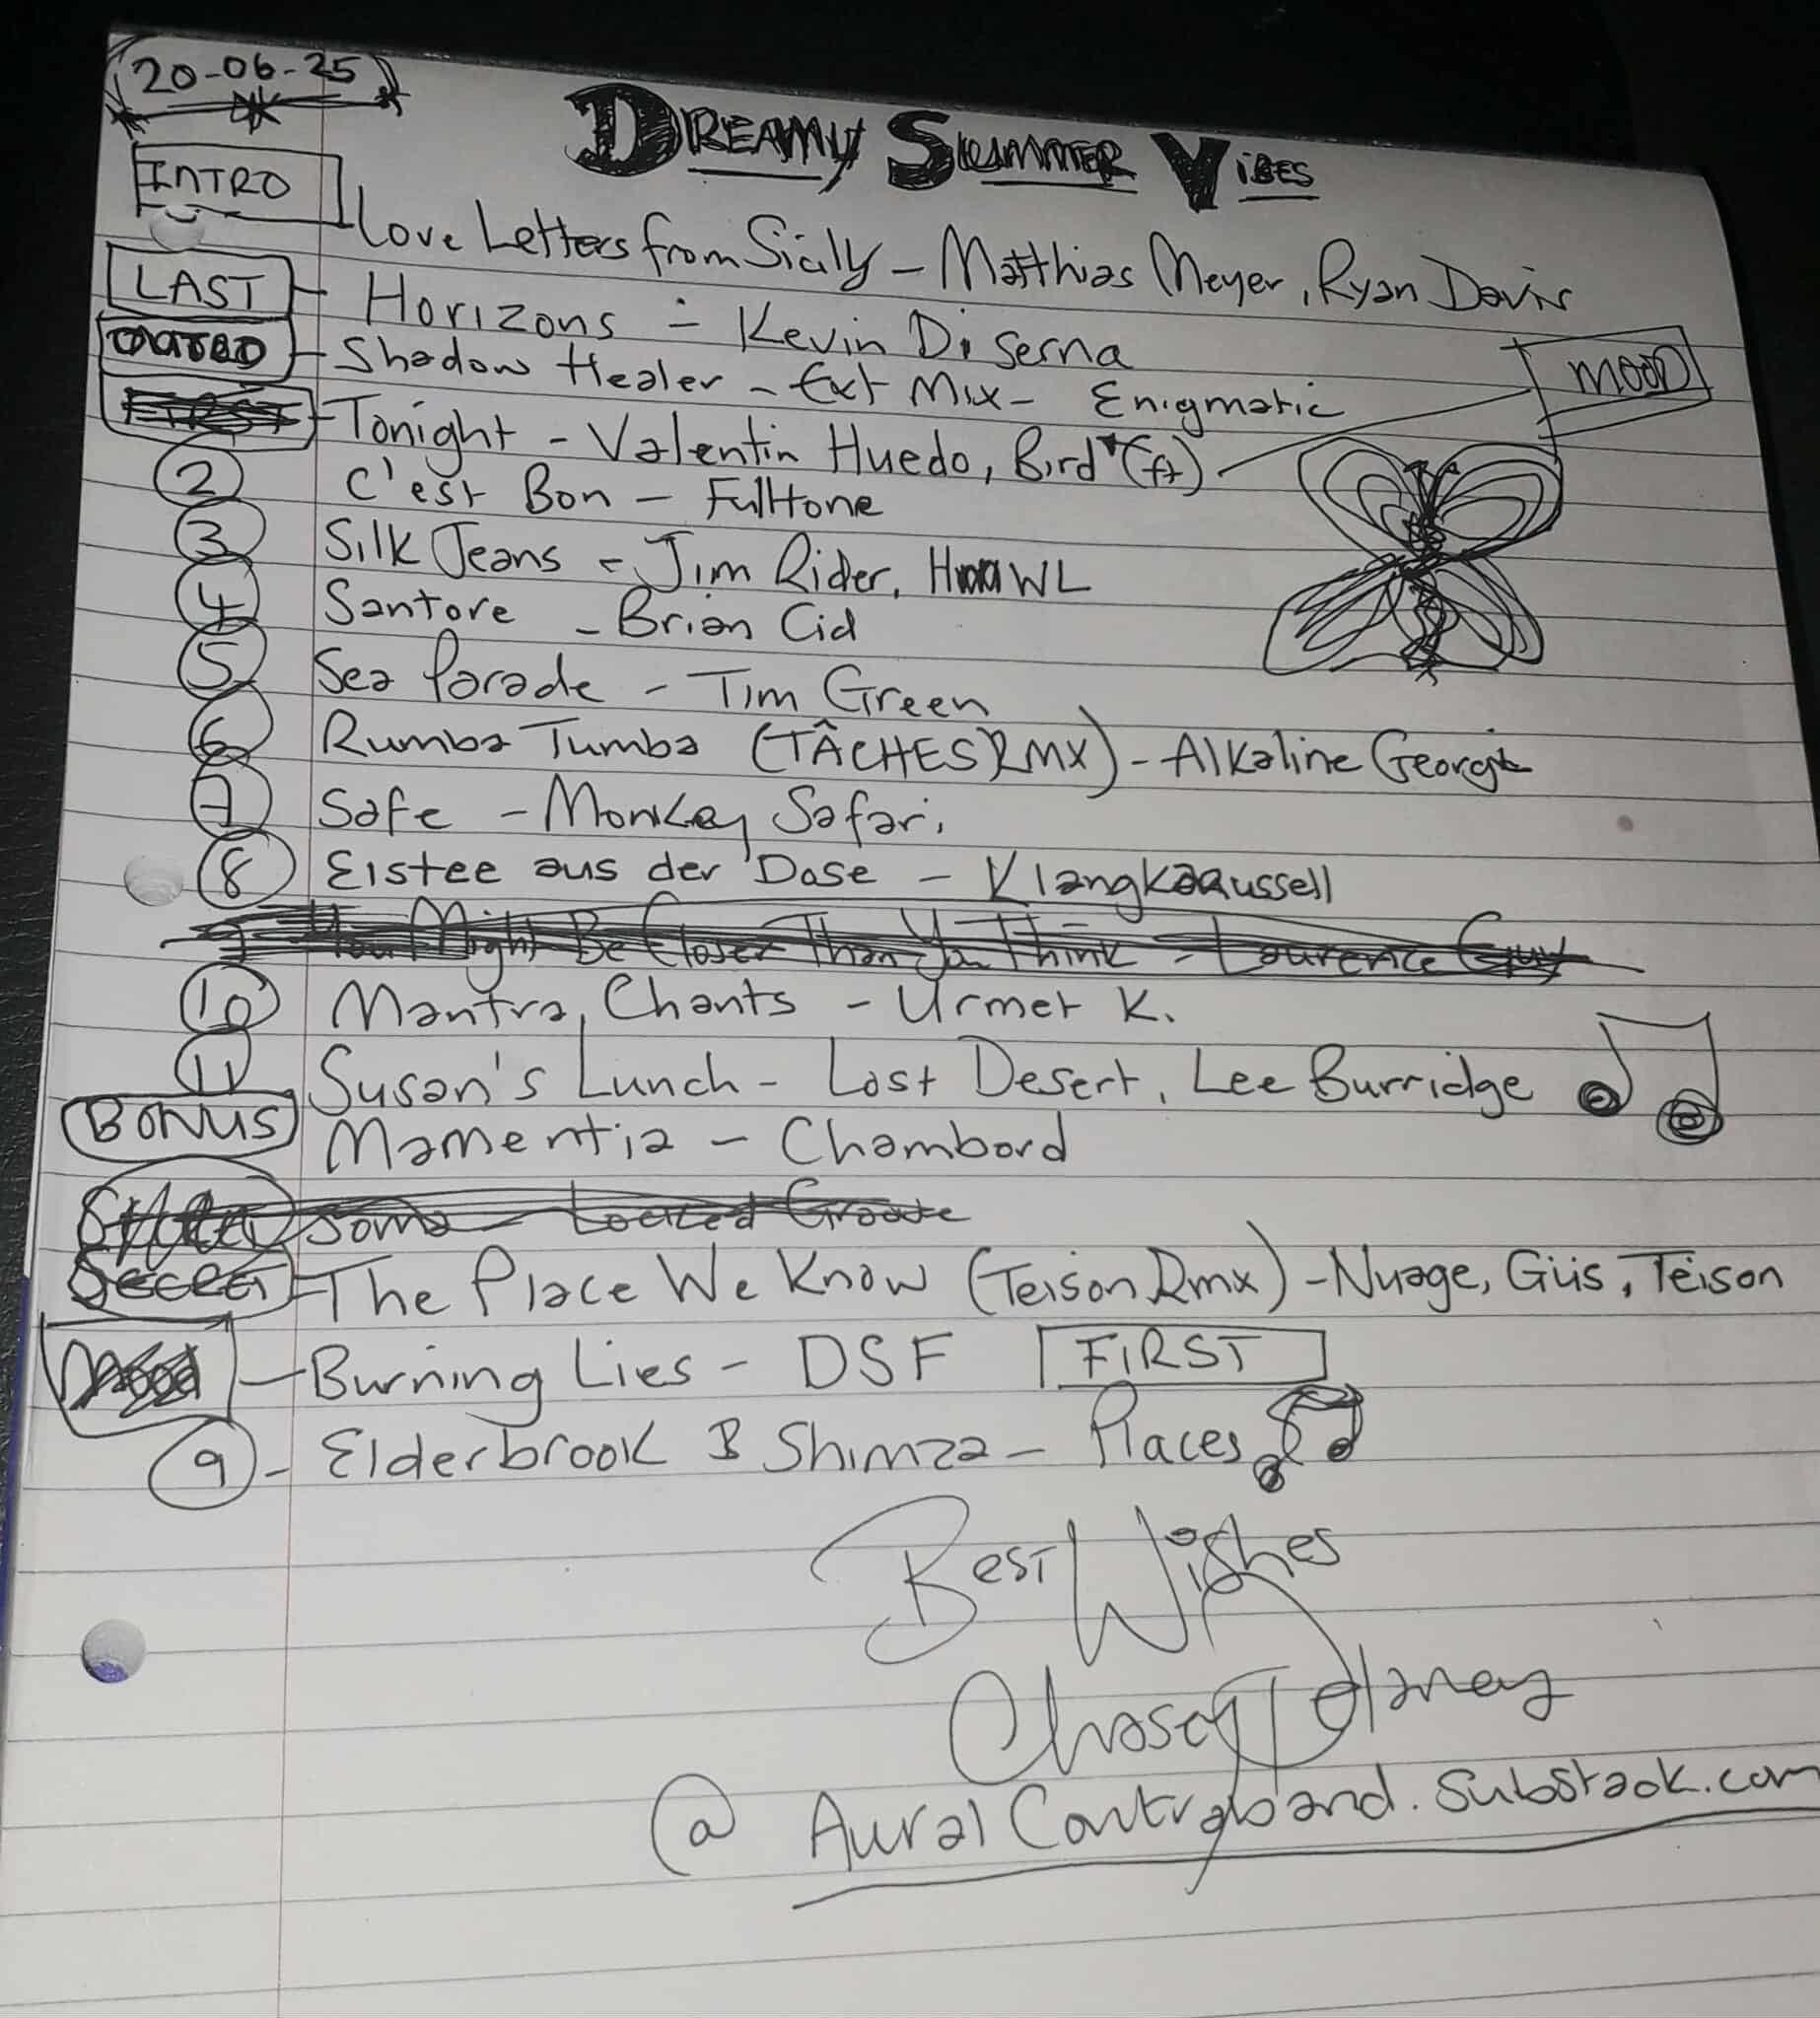 20-06-25
DREAMY SUMMER VIBES
INTRO Love Letters from Sicily - Matthias Meyer, Ryan Davis
LAST - Horizons - Kevin Di Serna
- Shadow Healer - Ext Mix - Enigmatic
MOOD
FIRST - Tonight - Valentin Huedo, Bird (ft)
2 C'est Bon - Fulltone
3 Silk Jeans - Jim Rider, HAWL
4 Santore - Brian Cid
5 Sea Parade - Tim Green
6 Rumba Tumba (TÂCHES RMX) - Alkaline Georgie
7 Safe - Monkey Safari,
8 Eistee aus der Dose - Klangkarussell
9 You Might Be Closer Than You Think - Laurence Guy
10 Mantra, Chants - Urmet K.
11 Susan's Lunch - Lost Desert, Lee Burridge
BONUS Mamentia - Chambord
Soma - Locked Groove
Secret - The Place We Know (Teison Rmx) - Nuage, Güs, Teison
Mood - Burning Lies - DSF FIRST
9 - Elderbrook & Shimza - Places
Best Wishes
@ Aural Contraband.substack.com